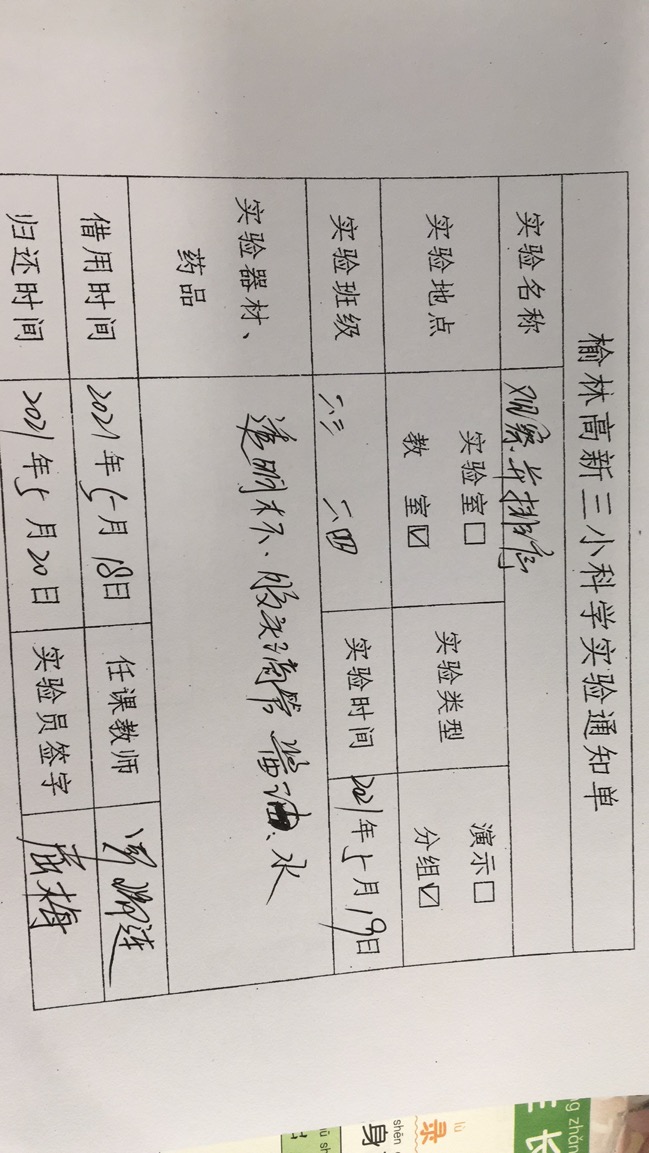 榆林高新三小科学实验通知单
实验名称 观察与描述
实验地点 实验室□ 教 室☑ 实验类型 演示□ 分组☑
实验班级 二.三 二.四 实验时间 2021年5月19日
实验器材、药品 透明杯、胶头滴管 酱油、水
借用时间 2021年5月18日 任课教师
归还时间 2021年5月20日 实验员签字
长
录
身